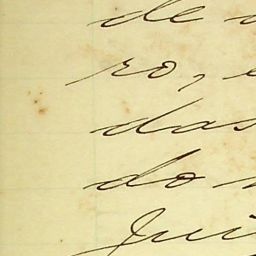 de
ro,
das
do
Jui